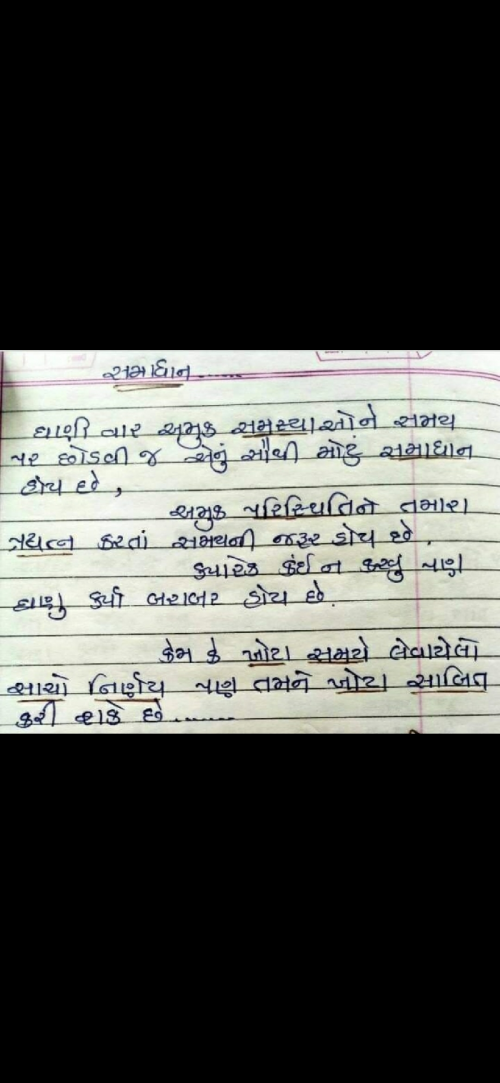 સમાધાન.......
ઘણી વાર અમુક સમસ્યાઓને સમય
પર છોડવી જ એનું સૌથી મોટું સમાધાન
હોય છે,
અમુક પરિસ્થિતિને તમારા
પ્રયત્ન કરતાં સમયની જરૂર હોય છે.
ક્યારેક કંઈ ન કરવું પણ
ઘણુ કર્યા બરાબર હોય છે.
કેમ કે ખોટા સમયે લેવાયેલો
સાચો નિર્ણય પણ તમને ખોટા સાબિત
કરી શકે છે.......